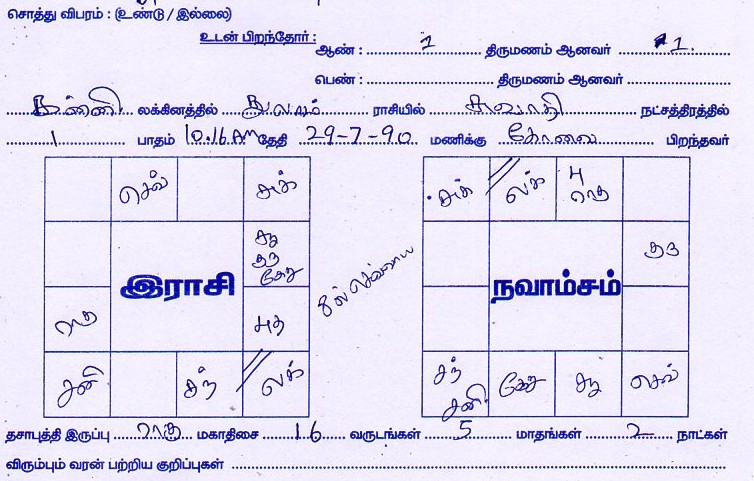 சொத்து விபரம் : (உண்டு / இல்லை)
உடன் பிறந்தோர் :
ஆண் : 1 திருமணம் ஆனவர் 1.
பெண் : திருமணம் ஆனவர்
கன்னி லக்கினத்தில் துலாம் ராசியில் சுவாதி நட்சத்திரத்தில்
1 பாதம் 10.16 AM தேதி 29-7-90 மணிக்கு கோவை பிறந்தவர்
செவ் சுக் சுக் லக் பு ராகு
சூ குரு கேது குரு
இராசி 8ல் செவ்வாய் நவாம்சம்
ராகு புத
சனி சந் லக் சந் சனி கேது சூ செவ்
தசாபுத்தி இருப்பு ராகு மகாதிசை 16 வருடங்கள் 5 மாதங்கள் 2 நாட்கள்
விரும்பும் வரன் பற்றிய குறிப்புகள்